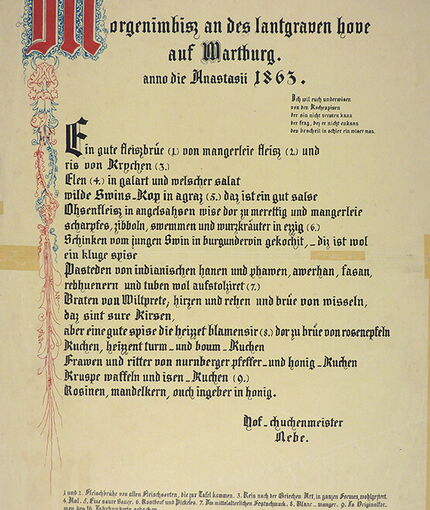 Morgenimbisz an des lantgraven hove
auf Wartburg.
anno die Anastasii 1863.
Ich wil euch underwisen
von den Kochespisen
der sin nicht versten kann
der frag, dez er nicht enkann
den bescheit in schier ein wiser man.
Ein gute fleiszbrüe (1) von mangerleie fleisz (2) und
ris von Krychen (3.)
Elen (4.) in galart und welscher salat
wilde Swins-Kop in agraz (5.) daz ist ein gut salse
Ohsenfleisz in angelsahsen wise dor zu merettig und mangerleie
scharpfes, zibboln, swemmen und wurzkräuter in ezzig (6.)
Schinken vom jungen Swin in burgunderwin gekochit, _ diz ist wol
ein kluge spise
Pasteden von indianischen hanen und phawen, awerhan, fasan,
rebhuenern und tuben wol aufstolziret (7.)
Braten von Wiltprete, hirzen und rehen und brüe von wisseln,
daz sint sure Kirsen,
aber eine gute spise die heizzet blamensir (8.) dor zu brüe von rosenepfeln
Kuchen, heizzent turm _ und boum _ Kuchen
Frawen und ritter von nurnberger pfeffer _ und honig _ Kuchen
Kruspe waffeln und isen _ Kuchen (9.)
Rosinen, mandelkern, ouch ingeber in honig.
Hof _ chuchenmeister
Nebe.
1 und 2. Fleischbrühe von allen Fleischsorten, die zur Tafel kommen. 3. Reis nach der Griechen Art, in ganzen Formen, wohlgeziert.
4. Aal. 5. Eine saure Sauce. 6. Roastbeef und Pickeles. 7. Im mittelalterlichen Festschmuck. 8. Blanc _ manger. 9. In Originalfor-
men des 16. Jahrhunderts gebacken